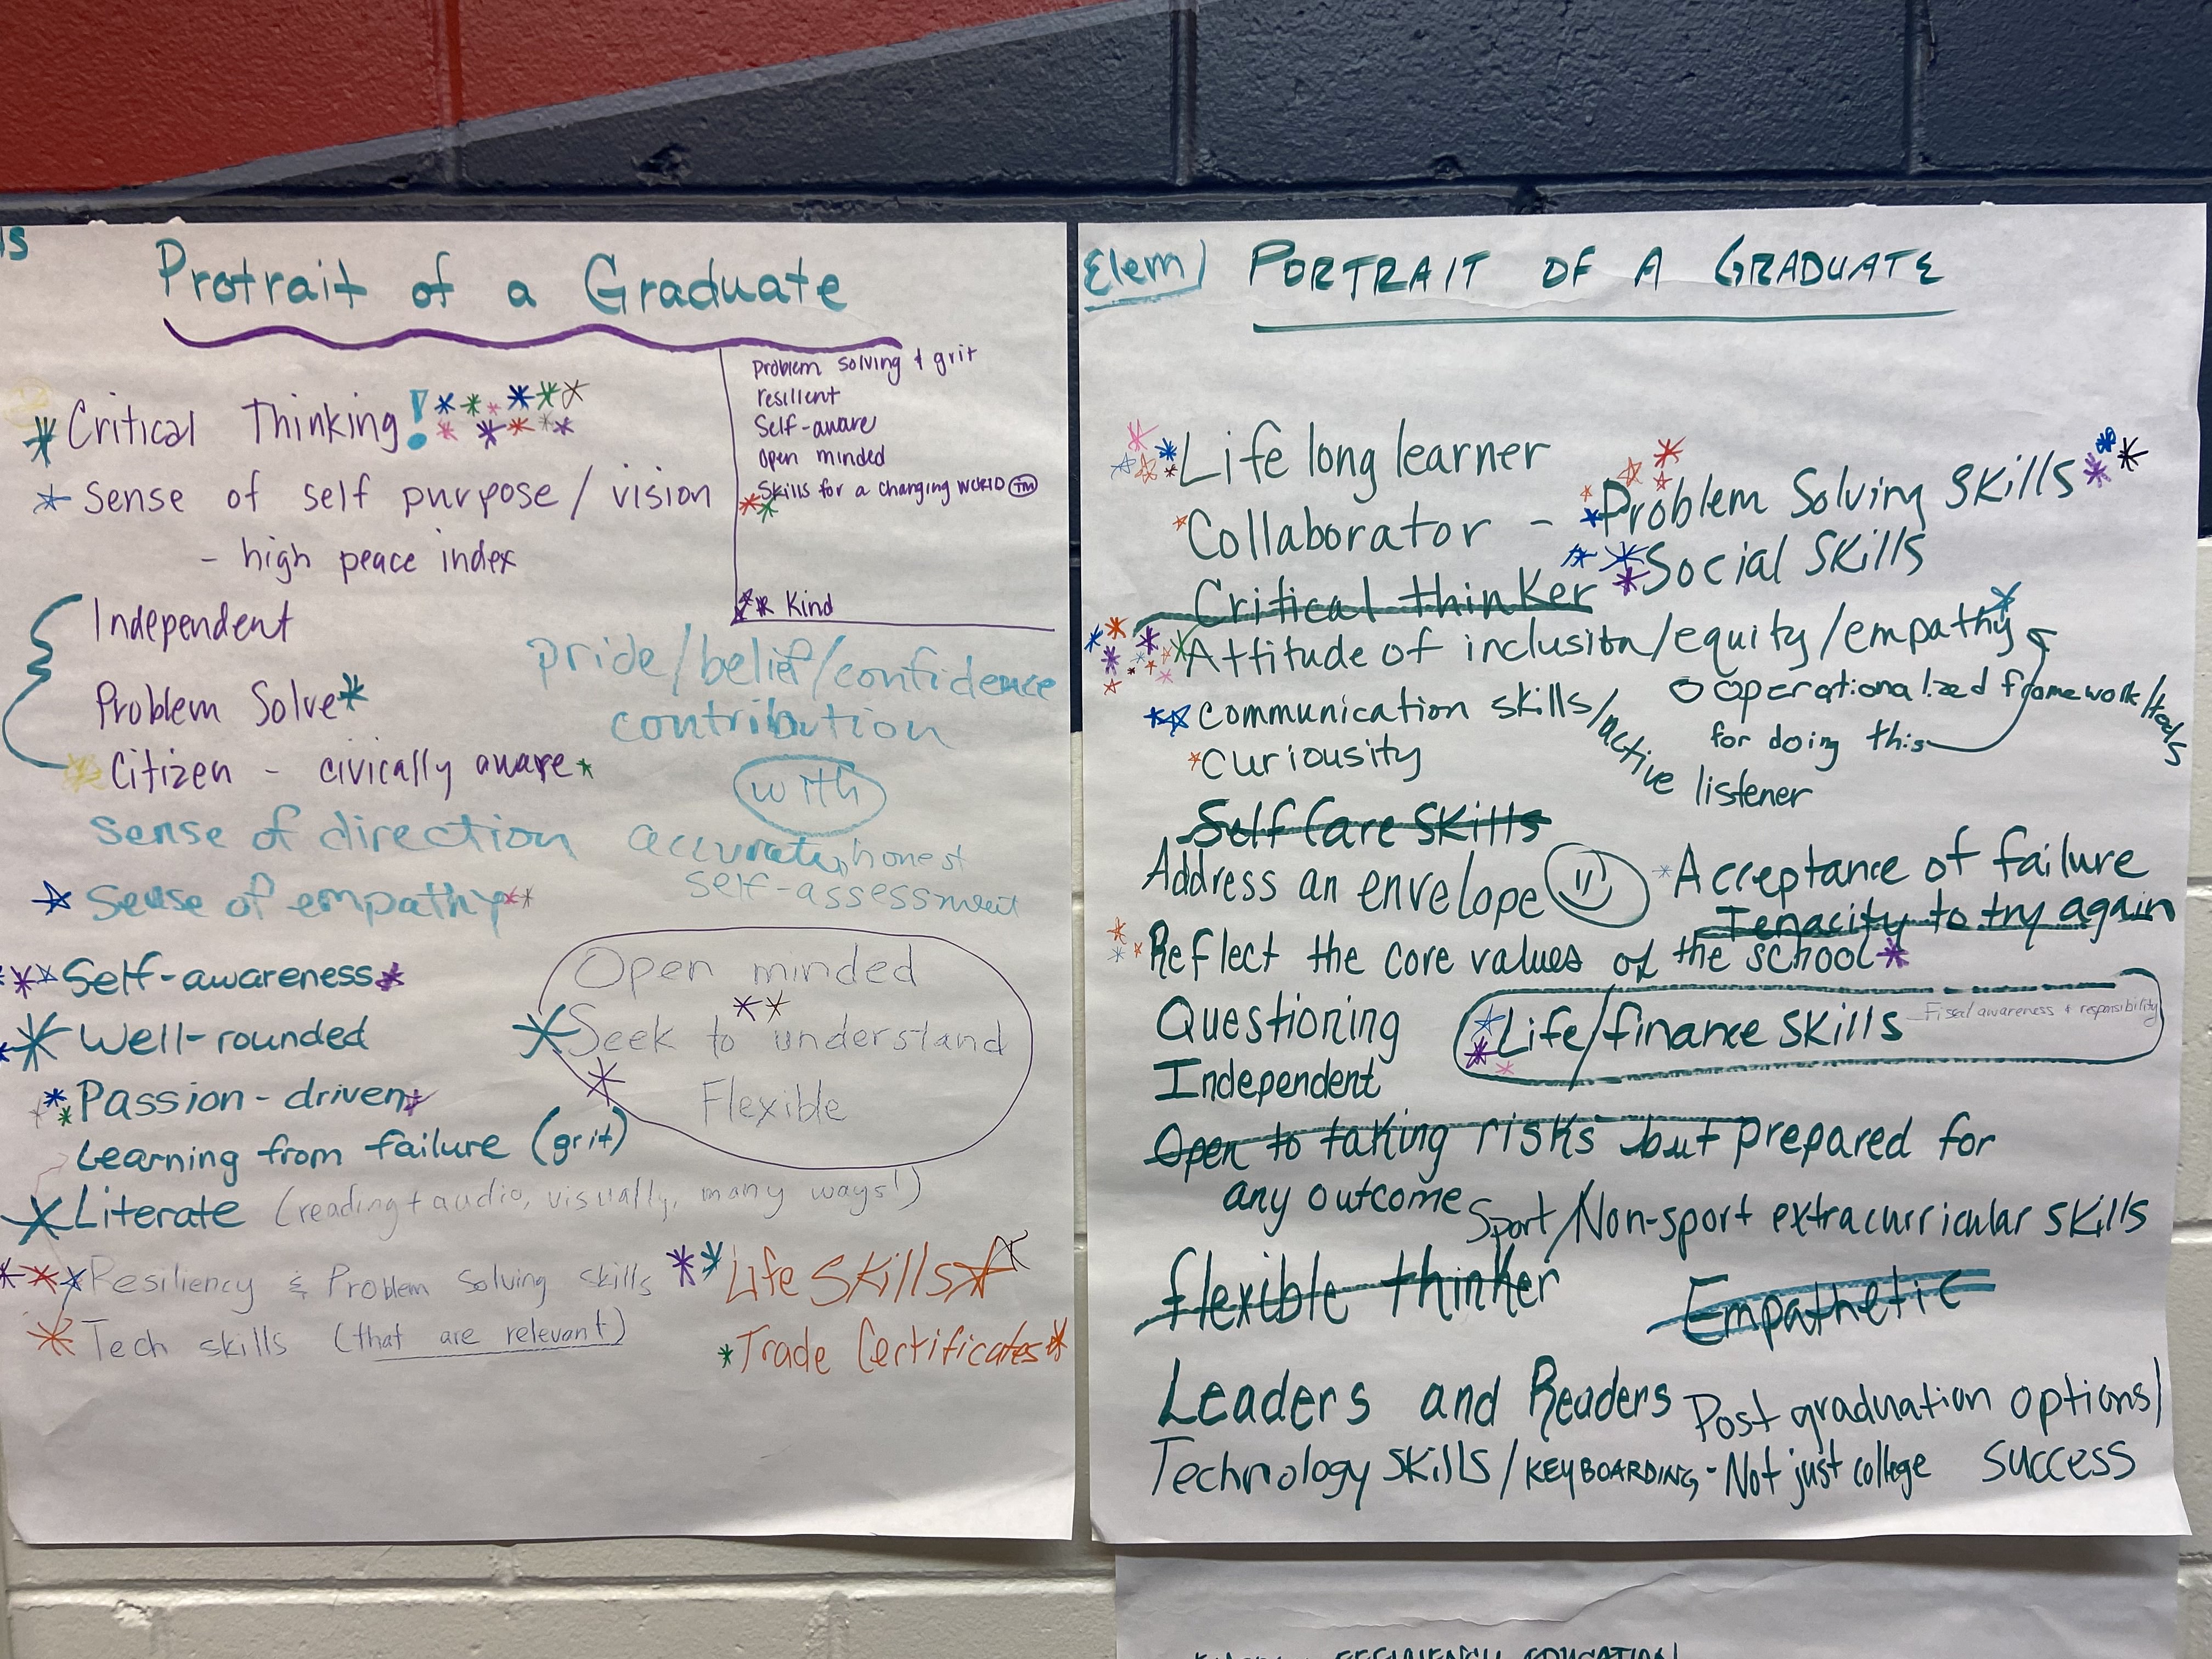 Protrait of a Graduate
Critical Thinking!
Sense of self purpose / vision
- high peace index
Independent
Problem Solve
Citizen - civically aware
Problem solving + grit
resilient
Self-aware
Open minded
Skills for a changing WORLD TM
Kind
pride/belief/confidence
contribution
with
accurate, honest
self-assessment
sense of direction
Sense of empathy
Self-awareness
Well-rounded
Passion-driven
Learning from failure (grit)
Literate (reading + audio, visually, many ways!)
Open minded
Seek to understand
Flexible
Resiliency & Problem Solving skills
Tech skills (that are relevant)
Life Skills
Trade Certificates
Elem
PORTRAIT OF A GRADUATE
Life long learner
Collaborator - Problem Solving Skills
Social Skills
Critical thinker
Attitude of inclusion/equity/empathy
operationalized framework/
for doing this
Communication skills/active listener
Curiousity
Self Care Skills
Address an envelope
Acceptance of failure
Tenacity to try again
Reflect the core values of the school
Questioning
Life/finance skills Fiscal awareness + responsibility
Independent
Open to taking risks but prepared for
any outcome
Sport/Non-sport extracurricular skills
Flexible thinker
Empathetic
Leaders and Readers
Post graduation options/
Technology skills/KEYBOARDING - Not just college success
EDUCATION